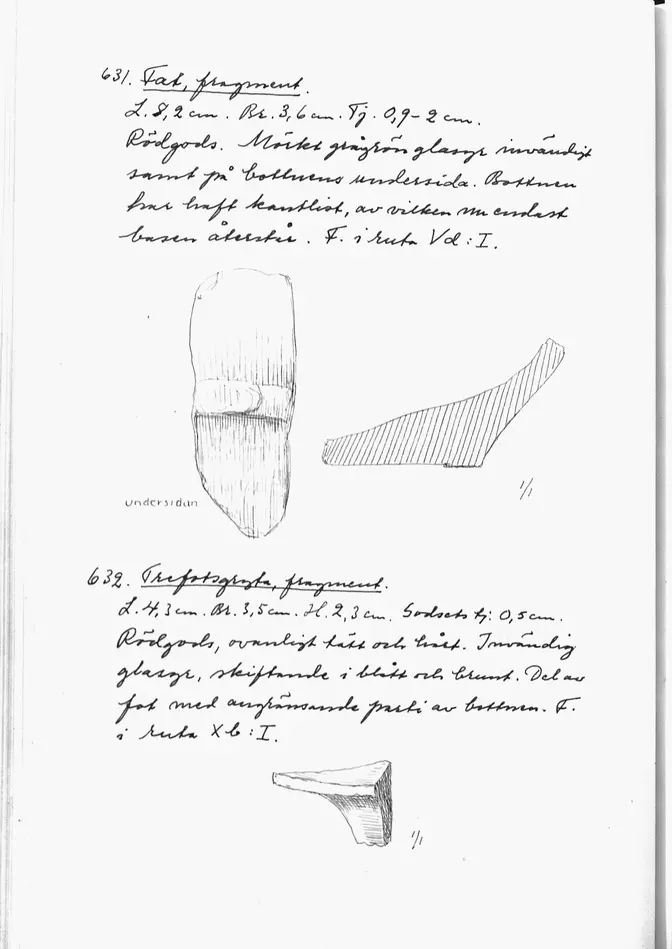 631. Fat, fragment.
L. 8,2 cm. Br. 3,6 cm. Tj. 0,9-2 cm.
Rödgods. Mörkt grågrön glasyr invändigt
samt på bottnens undersida. Bottnen
har haft kantlist, av vilken nu endast
basen återstår. F. i ruta Vd:I.
undersidan
1/1
632. Trefotsgryta, fragment.
L. 4,3 cm. Br. 3,5 cm. H. 2,3 cm. Godsets tj: 0,5 cm.
Rödgods, ovanligt tätt och hårt. Invändig
glasyr, skiftande i blått och brunt. Del av
fot med angränsande parti av bottnen. F.
i ruta Xb:I.
1/1